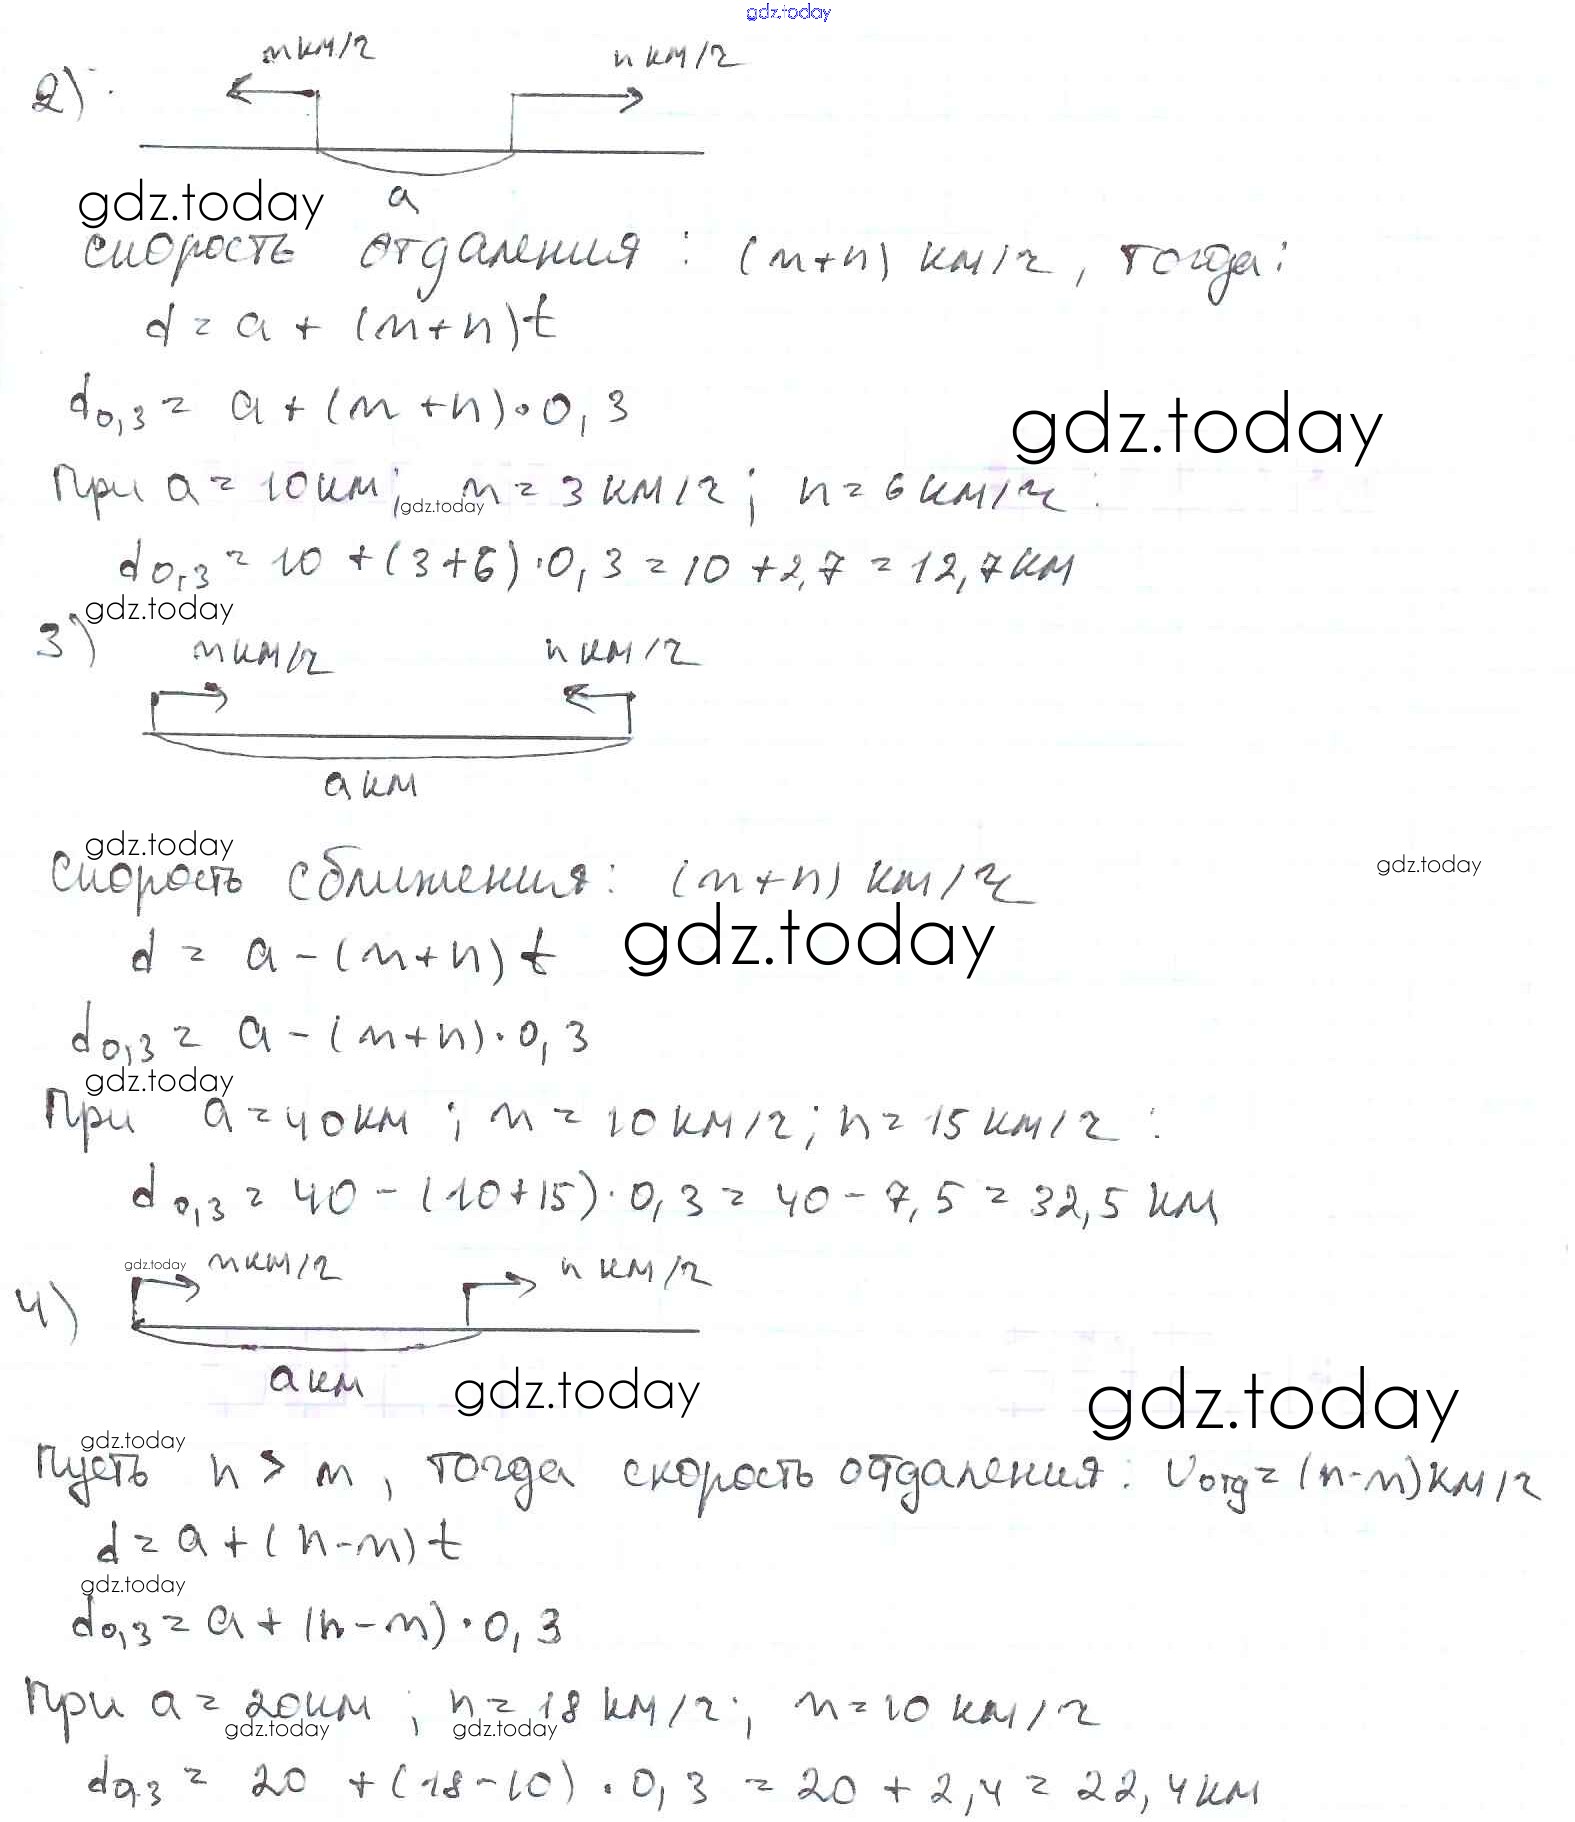 gdz.today
m км/ч n км/ч
2)
a
gdz.today
скорость отдаления : (m+n) км/ч, тогда:
d = a + (m+n)t
d0,3 = a + (m+n)·0,3
gdz.today
При a = 10 км; m = 3 км/ч; n = 6 км/ч :
gdz.today
d0,3 = 10 + (3+6)·0,3 = 10 + 2,7 = 12,7 км
gdz.today
3)
m км/ч n км/ч
a км
gdz.today
gdz.today
Скорость сближения: (m+n) км/ч
gdz.today
d = a - (m+n) t
d0,3 = a - (m+n)·0,3
gdz.today
При a = 40 км ; m = 10 км/ч; n = 15 км/ч :
d0,3 = 40 - (10+15)·0,3 = 40 - 7,5 = 32,5 км
gdz.today m км/ч n км/ч
4)
a км
gdz.today
gdz.today
gdz.today
Пусть n > m, тогда скорость отдаления: vотд = (n-m) км/ч
d = a + (n-m) t
gdz.today
d0,3 = a + (n-m)·0,3
При a = 20 км ; n = 18 км/ч; m = 10 км/ч
gdz.today gdz.today
d0,3 = 20 + (18-10)·0,3 = 20 + 2,4 = 22,4 км